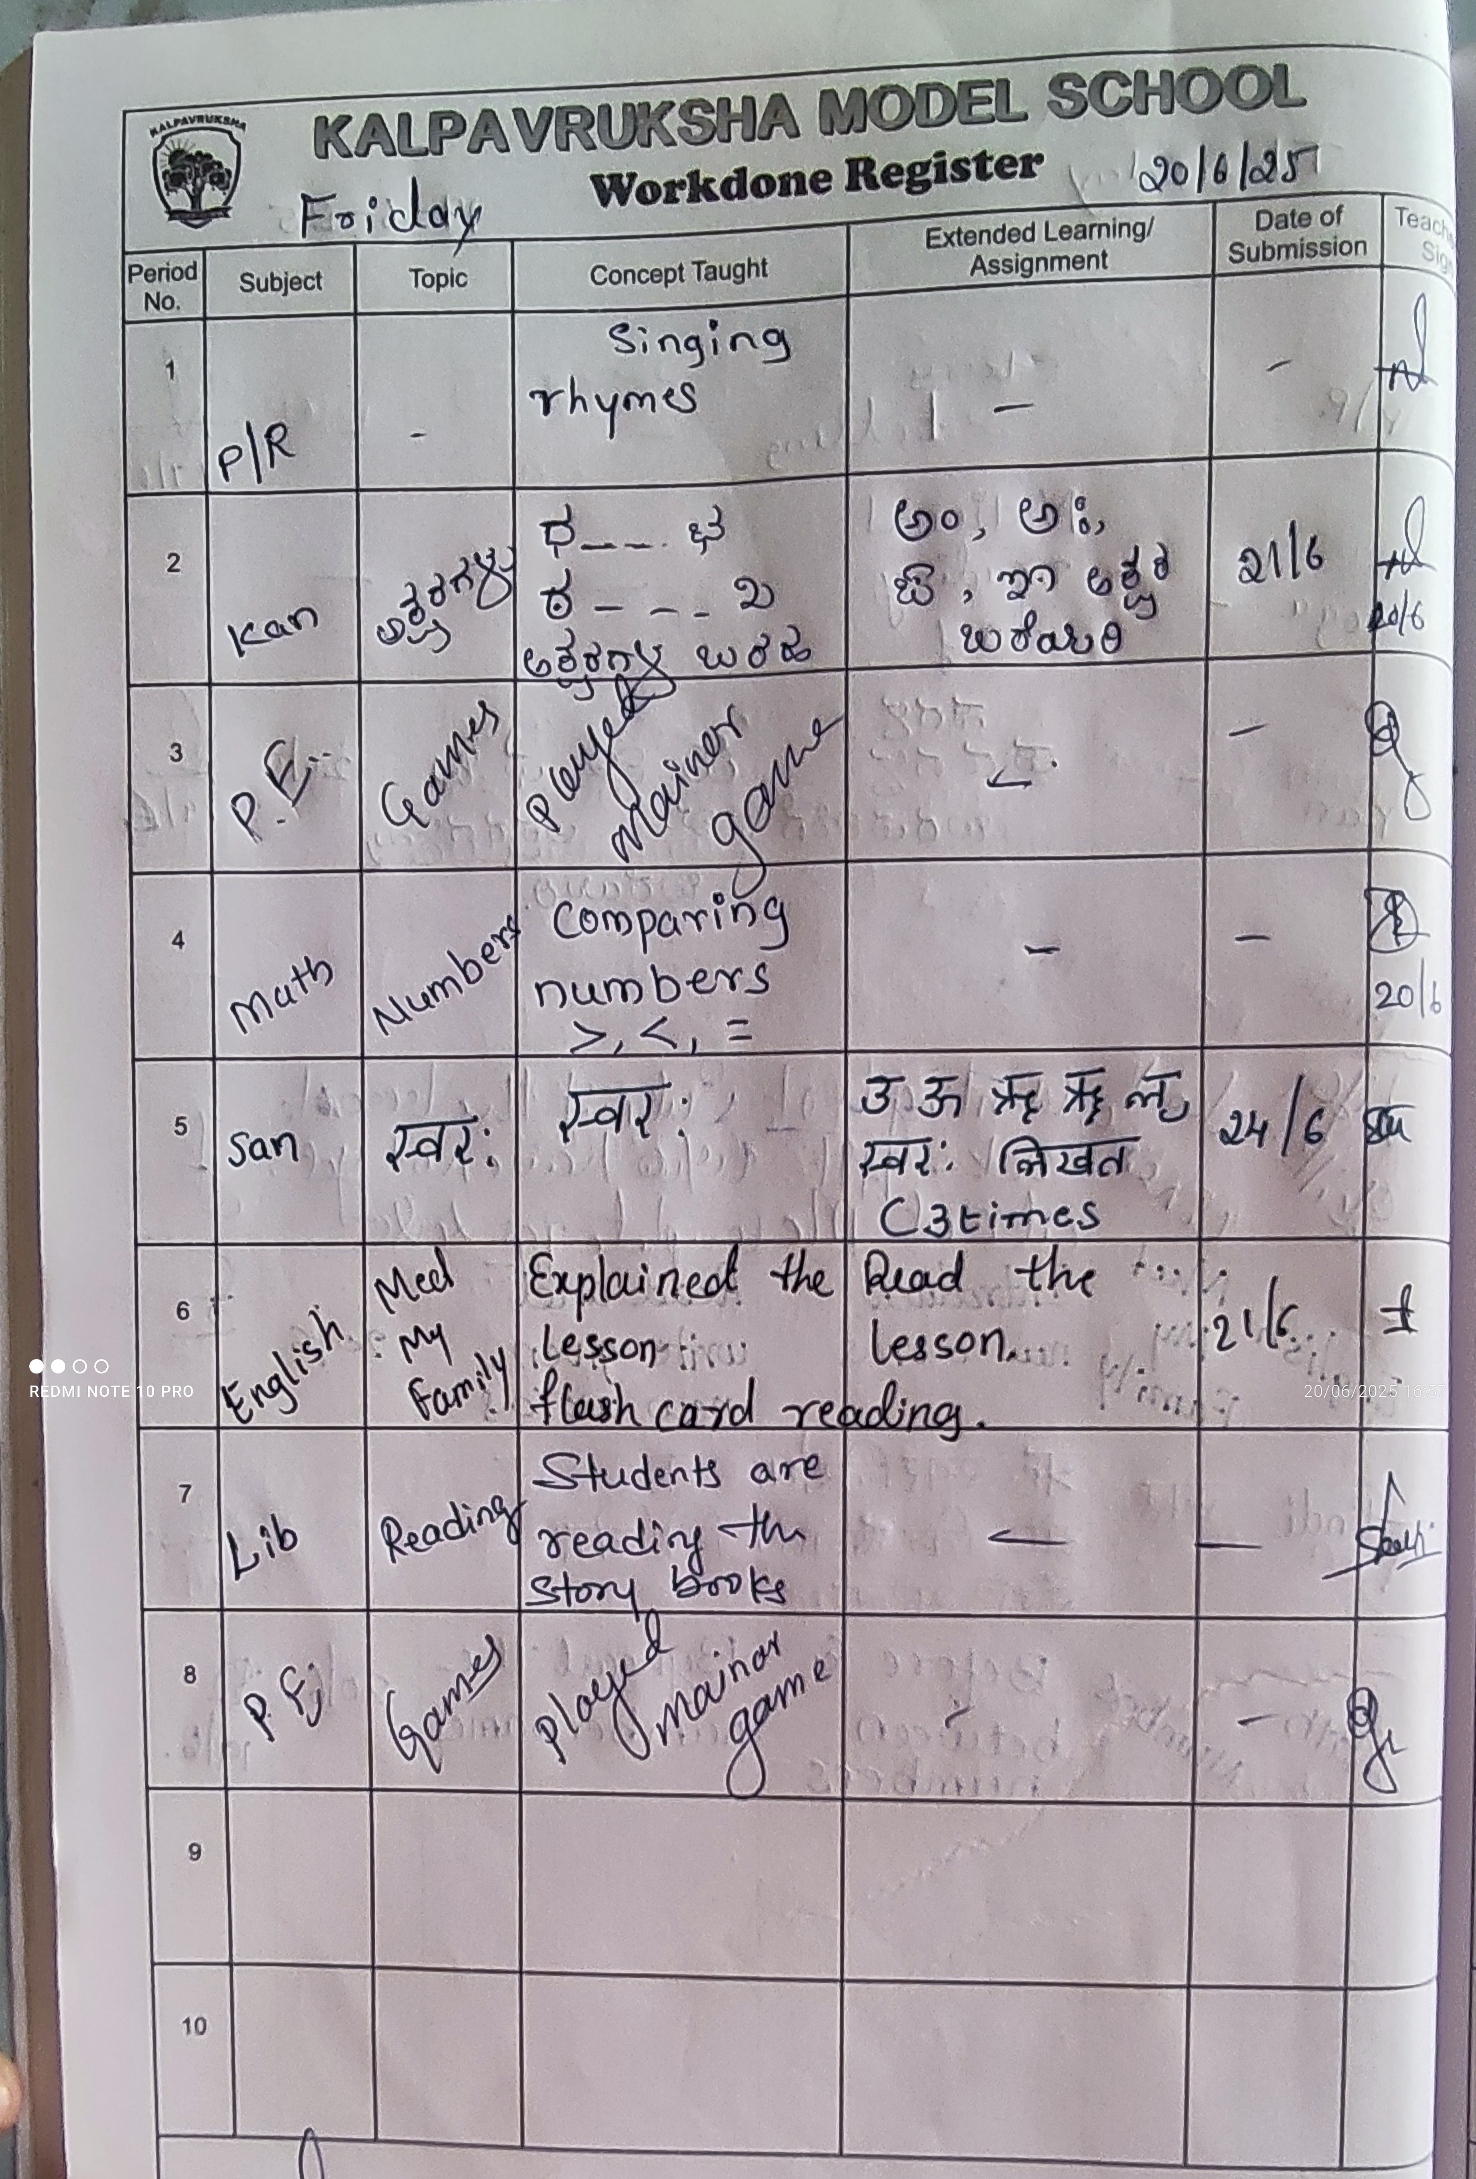 KALPAVRUKSHA
KALPAVRUKSHA MODEL SCHOOL
Workdone Register
Friday
20/6/25
Period No.
Subject
Topic
Concept Taught
Extended Learning/
Assignment
Date of
Submission
1
P/R
-
Singing
rhymes
-
-
2
Kan
ಅಕ್ಷರಗಳು
ಅಕ್ಷರಗಳ ಬರಹ
ಅಂ, ಅಃ,
ಅಕ್ಷರ
ಬರೆಯಿರಿ
21/6
20/6
3
P.E.
Games
Played
mainor
game
-
4
Math
Numbers
Comparing
numbers
>, <, =
-
-
20/6
5
San
स्वर:
स्वर:
उ ऊ ऋ ॠ ऌ
स्वर: लिखत
C 3times
24/6
6
English
Meed
My
Family
Explained the
lesson
flash card reading.
Read the
lesson.
21/6
7
Lib
Reading
Students are
reading the
story books
-
-
8
P.E.
Games
Played
mainor
game
-
-
9
10
REDMI NOTE 10 PRO